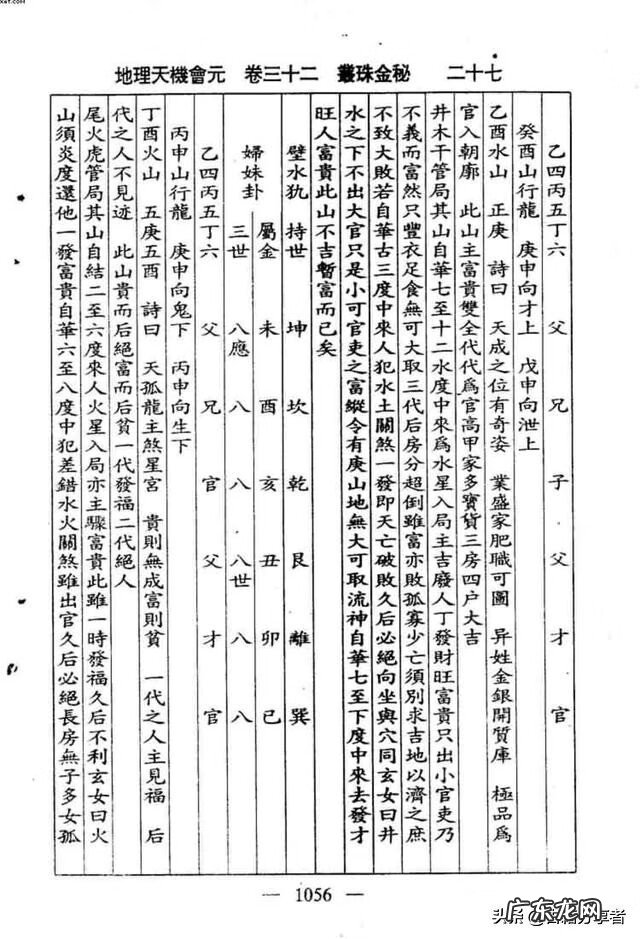 地理天機會元　卷三十二　叢珠金秘　二十七
乙四丙五丁六　父　兄　子　父　才　官
癸酉山行龍　庚申向才上　戊申向泄上
乙酉水山　正庚　詩曰　天成之位有奇姿　業盛家肥職可圖　异姓金銀開質庫　極品爲
官入朝廓　此山主富貴雙全代代爲官高甲家多寶貨三房四户大吉
井木干管局其山自華七至十二水度中來爲水星入局主吉廢人丁發財旺富貴只出小官吏乃
不義而富然只豐衣足食無可大取三代后房分超倒雖富亦敗孤寡少亡須别求吉地以濟之庶
不致大敗若自華古三度中來人犯水土關煞一發即天亡破敗久后必絕向坐與穴同玄女曰井
水之下不出大官只是小可官吏之富縱令有庚山地無大可取流神自華七至下度中來去發才
旺人富貴此山不吉暫富而已矣
壁水犰　持世　坤　坎　乾　艮　離　巽
屬金　未　酉　亥　丑　卯　己
婦妹卦
三世　八應　八　八　八世　八　八
乙四丙五丁六　父　兄　官　父　才　官
丙申山行龍　庚申向鬼下　丙申向生下
丁酉火山　五庚五酉　詩曰　天孤龍主煞星宮　貴則無成富則貧　一代之人主見福　后
代之人不見迹　此山貴而后絕富而后貧一代發福二代絕人
尾火虎管局其山自結二至六度來人火星入局亦主驟富貴此雖一時發福久后不利玄女曰火
山須炎度還他一發富貴自華六至八度中犯差錯水火關煞雖出官久后必絕長房無子多女孤
— 1056 —
广东龙网